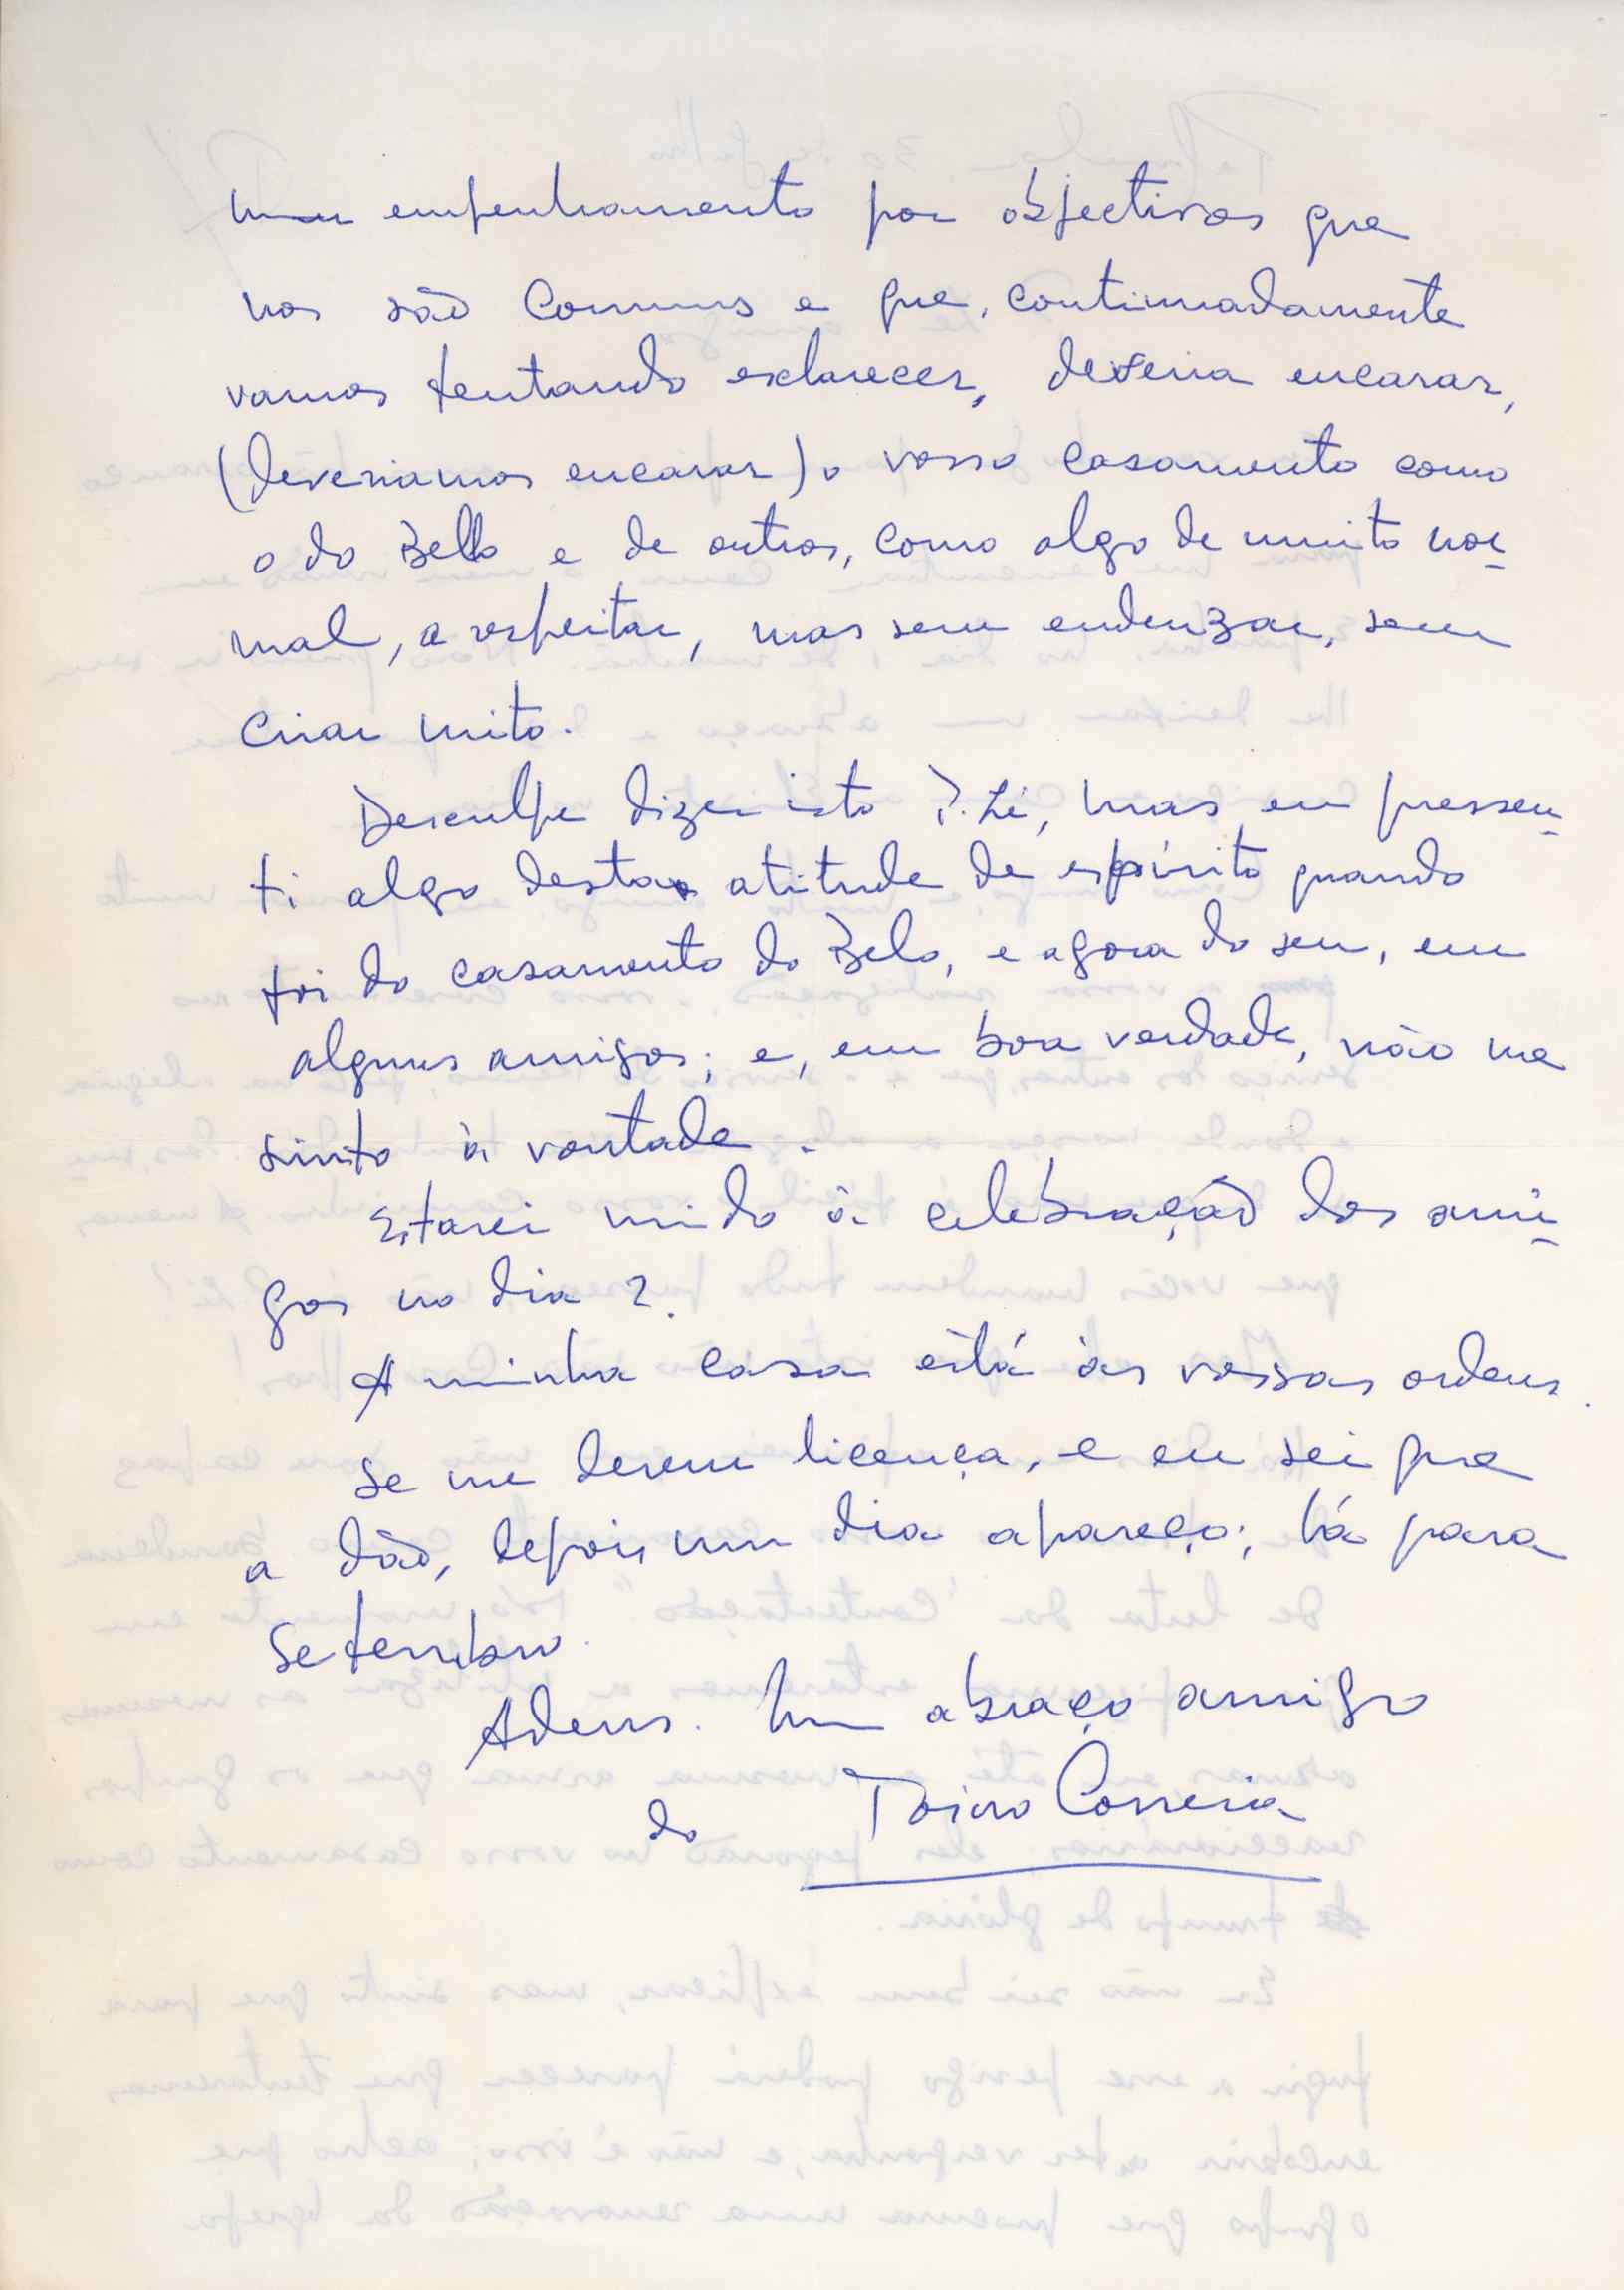 num empenhamento por objectivos que
nos são comuns e que, continuadamente
vamos tentando esclarecer, deveria encarar,
(deveriamos encarar) o vosso casamento como
o do Bello e de outros, como algo de muito nor-
mal, a respeitar, mas sem endeuzar, sem
criar mito.
Desculpe dizer isto P. Zé, mas eu pressen-
ti algo desta atitude de espírito quando
foi do casamento do Belo, e agora do seu, em
alguns amigos; e, em boa verdade, não me
sinto à vontade.
Estarei unido à celebração dos ami-
gos no dia 2.
A minha casa está às vossas ordens.
Se me derem licença, e eu sei que
a dão, depois um dia apareço; lá para
Setembro.
Adeus. Um abraço amigo
do Correia